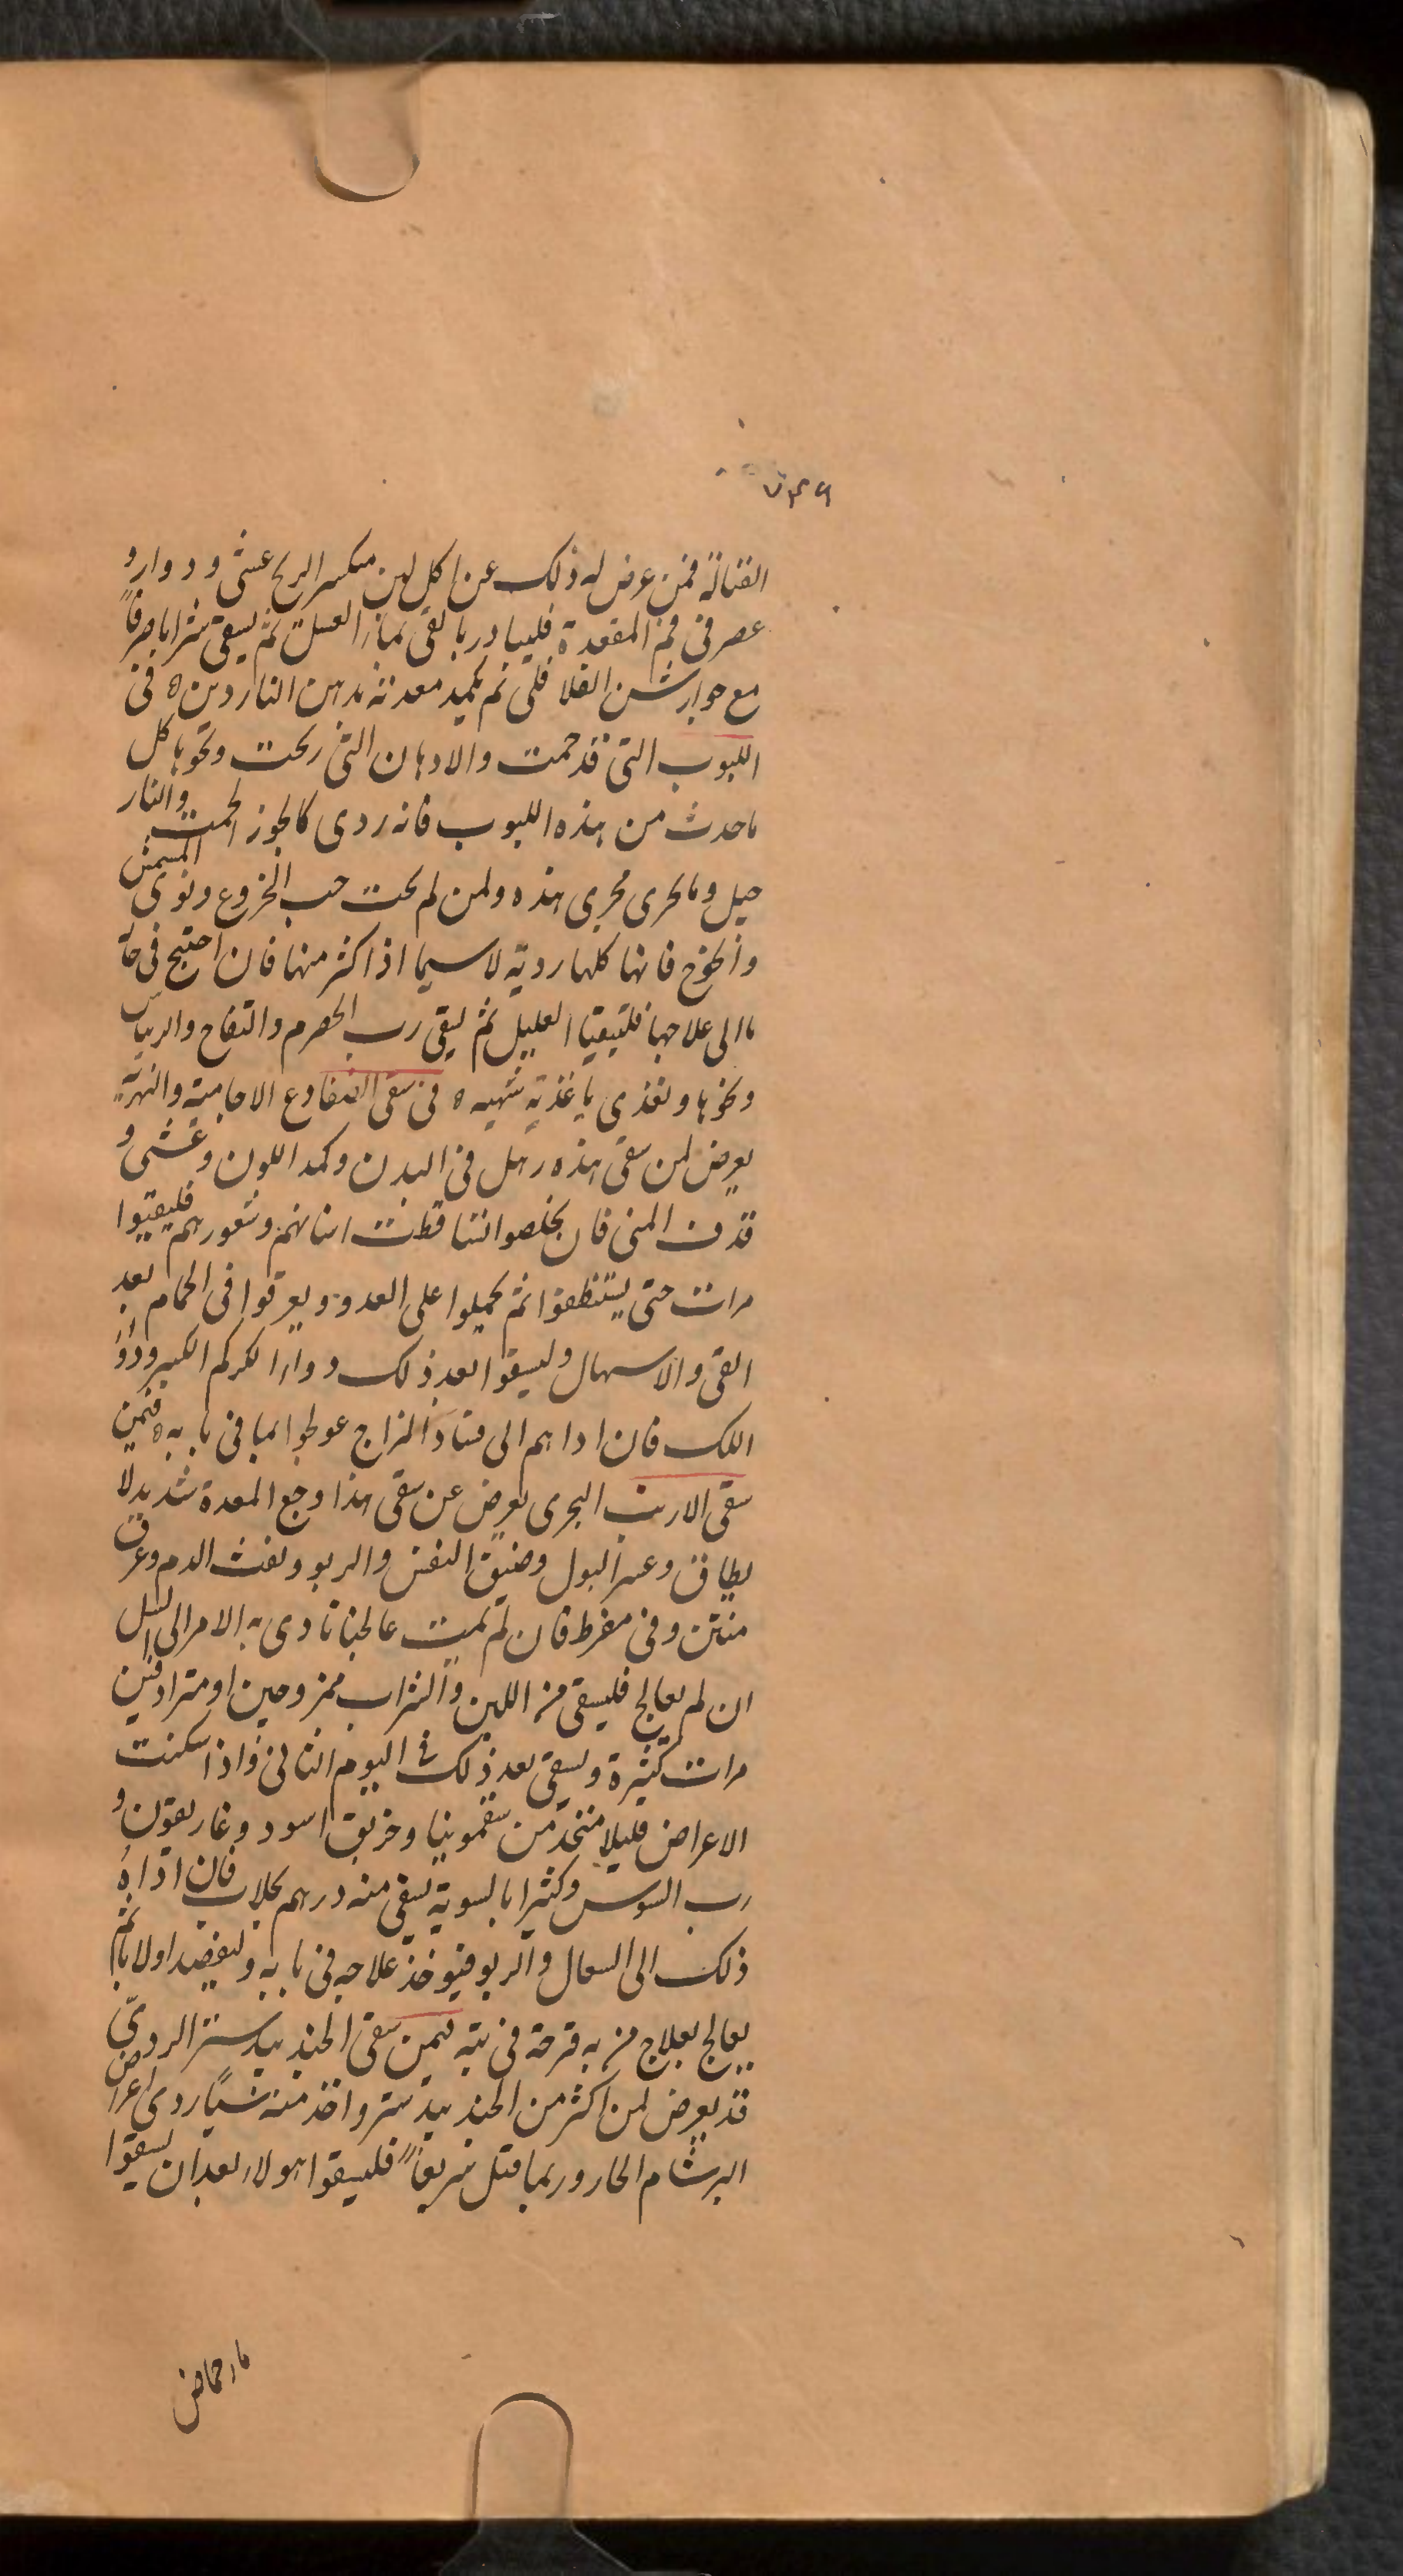 ٧٣٩
القتالة فمن عرض له ذلك عن اكل لبن متكسر الريح غشى ودوار و
عصر فى فم المقعدة فليبادر بالقى بماء العسل ثم يسقى شرابا صرفاً
مع جوارشن الفلافلى ثم يكمد معدته بدهن الناردين ه فى
اللبوب التى قد حمت والادهان التى ريحت ونحوها كل
ماحدث من هذه اللبوب فانه ردى كالجوز الحمت والنار
جيل وما يحرى مجرى هذه ولمن لم يحت حب الخروع ونوى المشمش
والخوخ فانها كلها ردية لاسيما اذا كثر منها فان احتيج فى حال
ما الى علاجها فليتقيا العليل ثم ليقى رب الحصرم والتفاح والريباس
ونحوها ويغذى باغذية شهيه ه فى سقى الضفادع الاجامية والنهرية
يعرض لمن سقى هذه رهل فى البدن وكمد اللون وغشى و
قذف المنى فان يخلصوا انتساقطت اسنانهم وشعورهم فليقيئوا
مرات حتى يستنظفوا ثم يحملوا على العدو ويعرقوا فى الحمام بعد
القى والاسهال وليسقوا بعد ذلك دواء الكركم الكبير ودواء
اللك فان اداهم الى فساد المزاج عولجوا بما فى بابه ه فيمن
سقى الارنب البحرى يعرض عن سقى هذا وجع المعدة شديد لا
يطاق وعسر البول وضيق النفس والربو ونفث الدم وعرق
منتن وفى مفرط فان لم يمت عاجلنا تادى به الامر الى السل
ان لم يعالج فليسقى من اللبن والشراب ممزوجين او مترادفين
مرات كثيرة ويسقى بعد ذلك فى اليوم الثانى واذا سكنت
الاعراض قليلا متخذ من سقمونيا وخربق اسود وغاريقون و
رب السوس وكثيرا بالسوية يسقى منه درهم بجلاب فان اداه
ذلك الى السعال والربو فيوخذ علاجه فى بابه وليفصد اولا ثم
يعالج بعلاج من به قرحة فى ريته فيمن سقى الجندبيدستر الردىّ
قد يعرض لمن اكثر من الجندبيدستر واخذ منه شيًا ردى اعراض
البرسام الحار وربما قتل سريعاً فليسقوا هولاء بعد ان يسقوا
ماء حماض